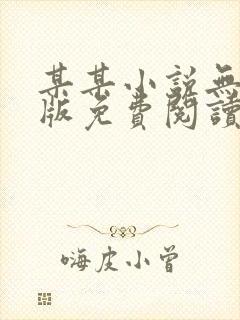 某某小说無
版免費閱讀
嗨皮小曾